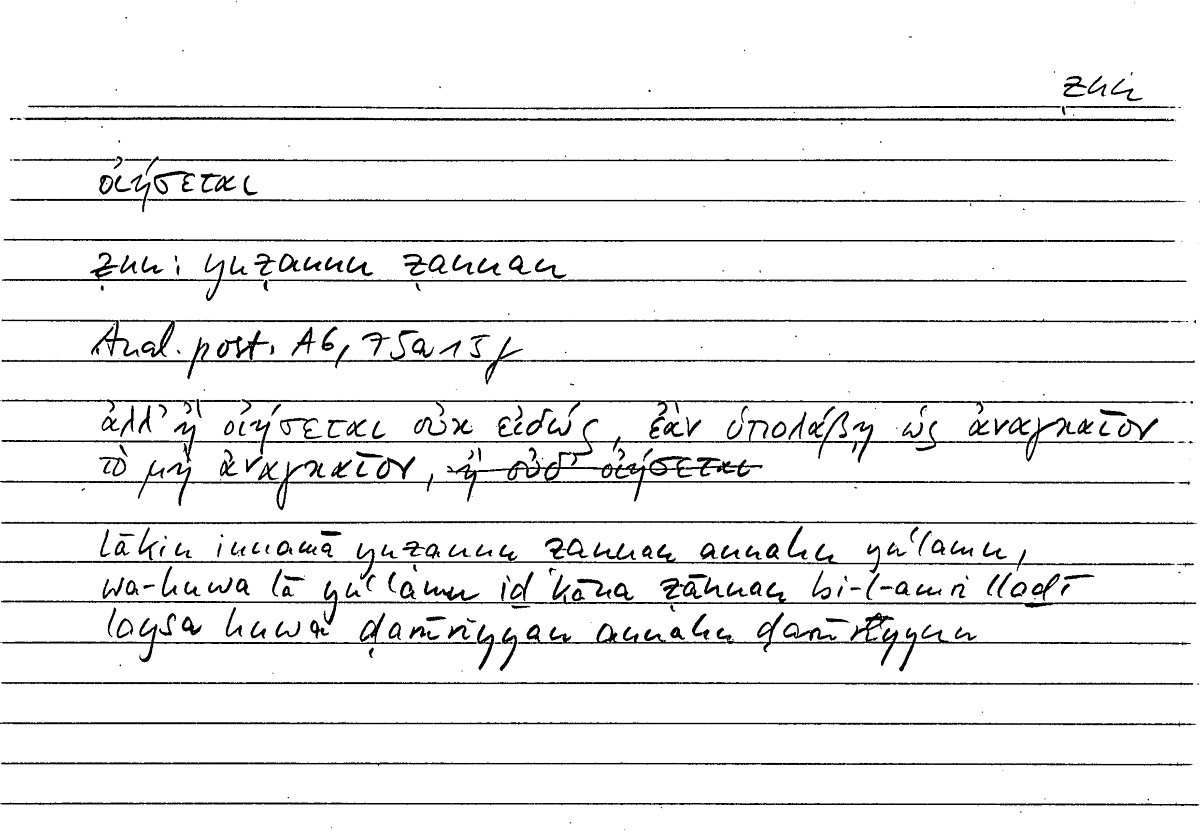 ẓnn
οἰήσεται
ẓnn: yuẓannu ẓannan
Anal. post. A6, 75a15f
ἀλλ' ἢ οἰήσεται οὐκ εἰδώς, ἐὰν ὑπολάβῃ ὡς ἀναγκαῖον
τὸ μὴ ἀναγκαῖον, ἢ οὐδ' οἰήσεται
lākin innamā yuẓannu ẓannan annahu yuʿlamu,
wa-huwa lā yuʿlamu iḏ kāna ẓānnan bi-l-amri llaḏī
laysa huwa ḍarūriyyan annahu ḍarūriyyun